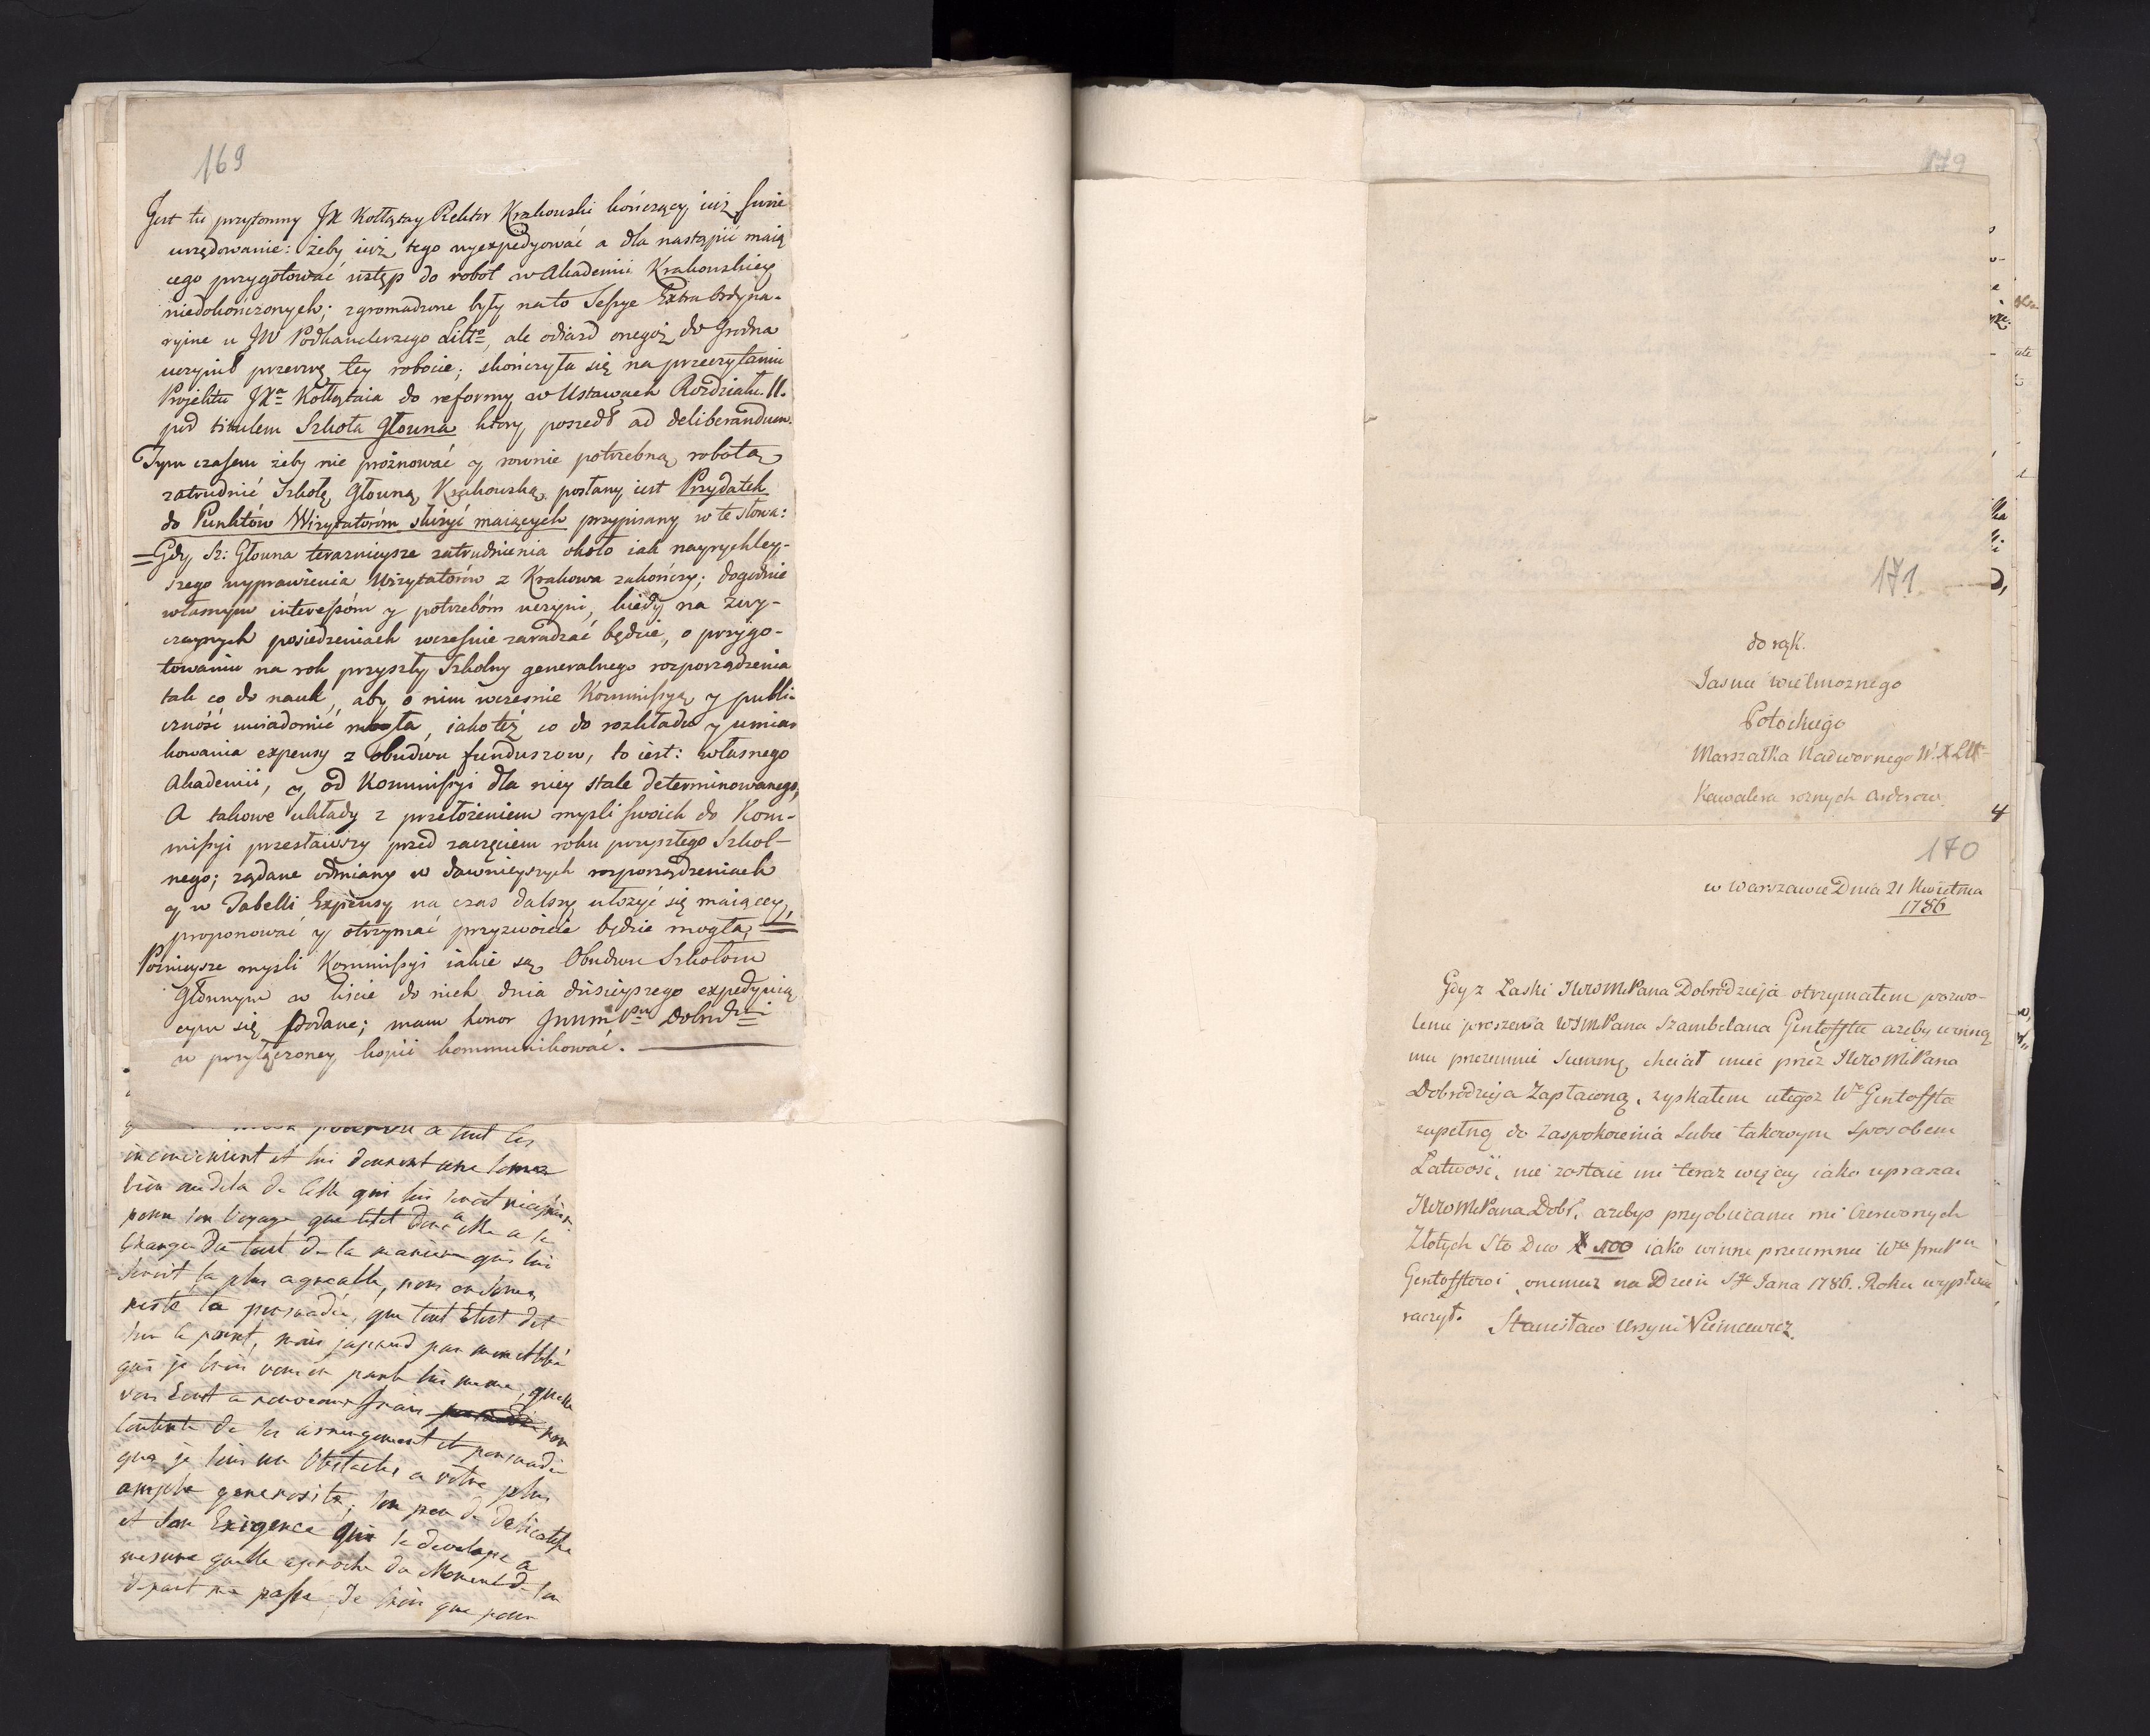 169
Jest tu przytomny JX Kołłątay Rektor Krakowski kończący iuż swoie
urzędowanie: żeby iuż tego wyexpedyować a dla nastąpić maią
cego przygotować wstęp do robot w Akademii Krakowskiey
niedokończonych; zgromadzone były na to Sessye Extraordyna-
ryine u JW Podkanclerzego Litto, ale odiazd onegoż do Grodna
uczynił przerwę tey robocie; skończyła się na przeczytaniu
Projektu JXa Kołłątaia do reformy w Ustawach Rozdziału II.
pod titulem Szkoła Głowna ktory poszedł ad deliberandum.
Tym czasem żeby nie prożnować y rownie potrzebną robotą
zatrudnić Szkołę Głowną Krakowską posłany iest Przydatek
do Punktów Wizytatorom służyć maiących przypisany w te słowa:
=Gdy Sz: Głowna teraznieysze zatrudnienia około iak nayrychley-
szego wyprawienia Wizytatorów z Krakowa zakończy; dogodnie
własnym interessóm y potrzebóm uczyni, kiedy na zwy-
czaynych posiedzeniach wcześnie zaradzać będzie, o przygo-
towaniu na rok przyszły Szkolny generalnego rozporządzenia
tak co do nauk, aby o nim wcześnie Kommissyą y publi-
czność uwiadomić mogła, iako też co do rozkładu y umiar
kowania expensy z obudwu funduszow, to iest: własnego
Akademii, y od Kommissyi dla niey stale determinowanego,
A takowe układy z przełożeniem mysli swoich do Kom-
missyi przesławszy przed zaczęciem roku przyszłego Szkol-
nego; żądane odmiany w dawnieyszych rozporządzeniach
y w Tabelli Expensy na czas dalszy ułożyć się maiącey,
proponować y otrzymać przyzwoicie będzie mogła, =
Poźnieysze mysli Kommissyi iakie są Obudwu Szkołom
Głównym w liście do nich dnia dzisieyszego expedyuią
cym się podane; mam honor JWWMPu Dobrodzi
w przyłączoney kopii kommunikować.
a tout les
inconvenient et lui donnent une somme
bien au dela de celle qui lui seroit necessaire
pour son voyage que cetet donc a elle a se
changer du tout de la maniere qui lui
seroit la plus agreable, nous en somes
resté la persuadé, que tout Etoit dit
sur ce point, mais japrend par mon Abbé
qui je crois vous en parle lui meme, quelle
vous Ecrit a nouveaux frais non
contente de ses arrengement et persuadé
que je suis un Obstacle a votre plus
ample generosité; son peu de delicatesse
et son Exigence qui se develope a
mesure quelle aproche du Moment de son
depart me passe. Je crois que pour
179
171
do rąk.
Jasnie wielmoznego
Potockiego
Marszałka Nadwornego W. X Litt
Kawalera roznych orderow
4
170
w Warszawie Dnia 21 Kwietnia
1786
Gdyz Łaski JWWMPana Dobrodzieja otrzymałem pozwo-
lenie proszenia WJMPana Szambelana Gintoffta azeby winną
mu przezemnie Summę chciał miec przez JWWMPana
Dobrodzieja Zapłaconą, zyskałem utegoz Wo Gintoffta
zupełną do Zaspokoienia Siebie takowym sposobem
Łatwość, nie zostaie mi teraz więcey iako upraszac
JWWMPana Dobr. azebyś przyobiecane mi Czerwonych
Złotych Sto Dwo # 100 iako winne przezemnie Wu JmcPu
Gintofftowi, onemuz na Dzień Sgo Jana 1786. Roku wypłacic
raczył.
Stanisław Ursyn Niemcewicz